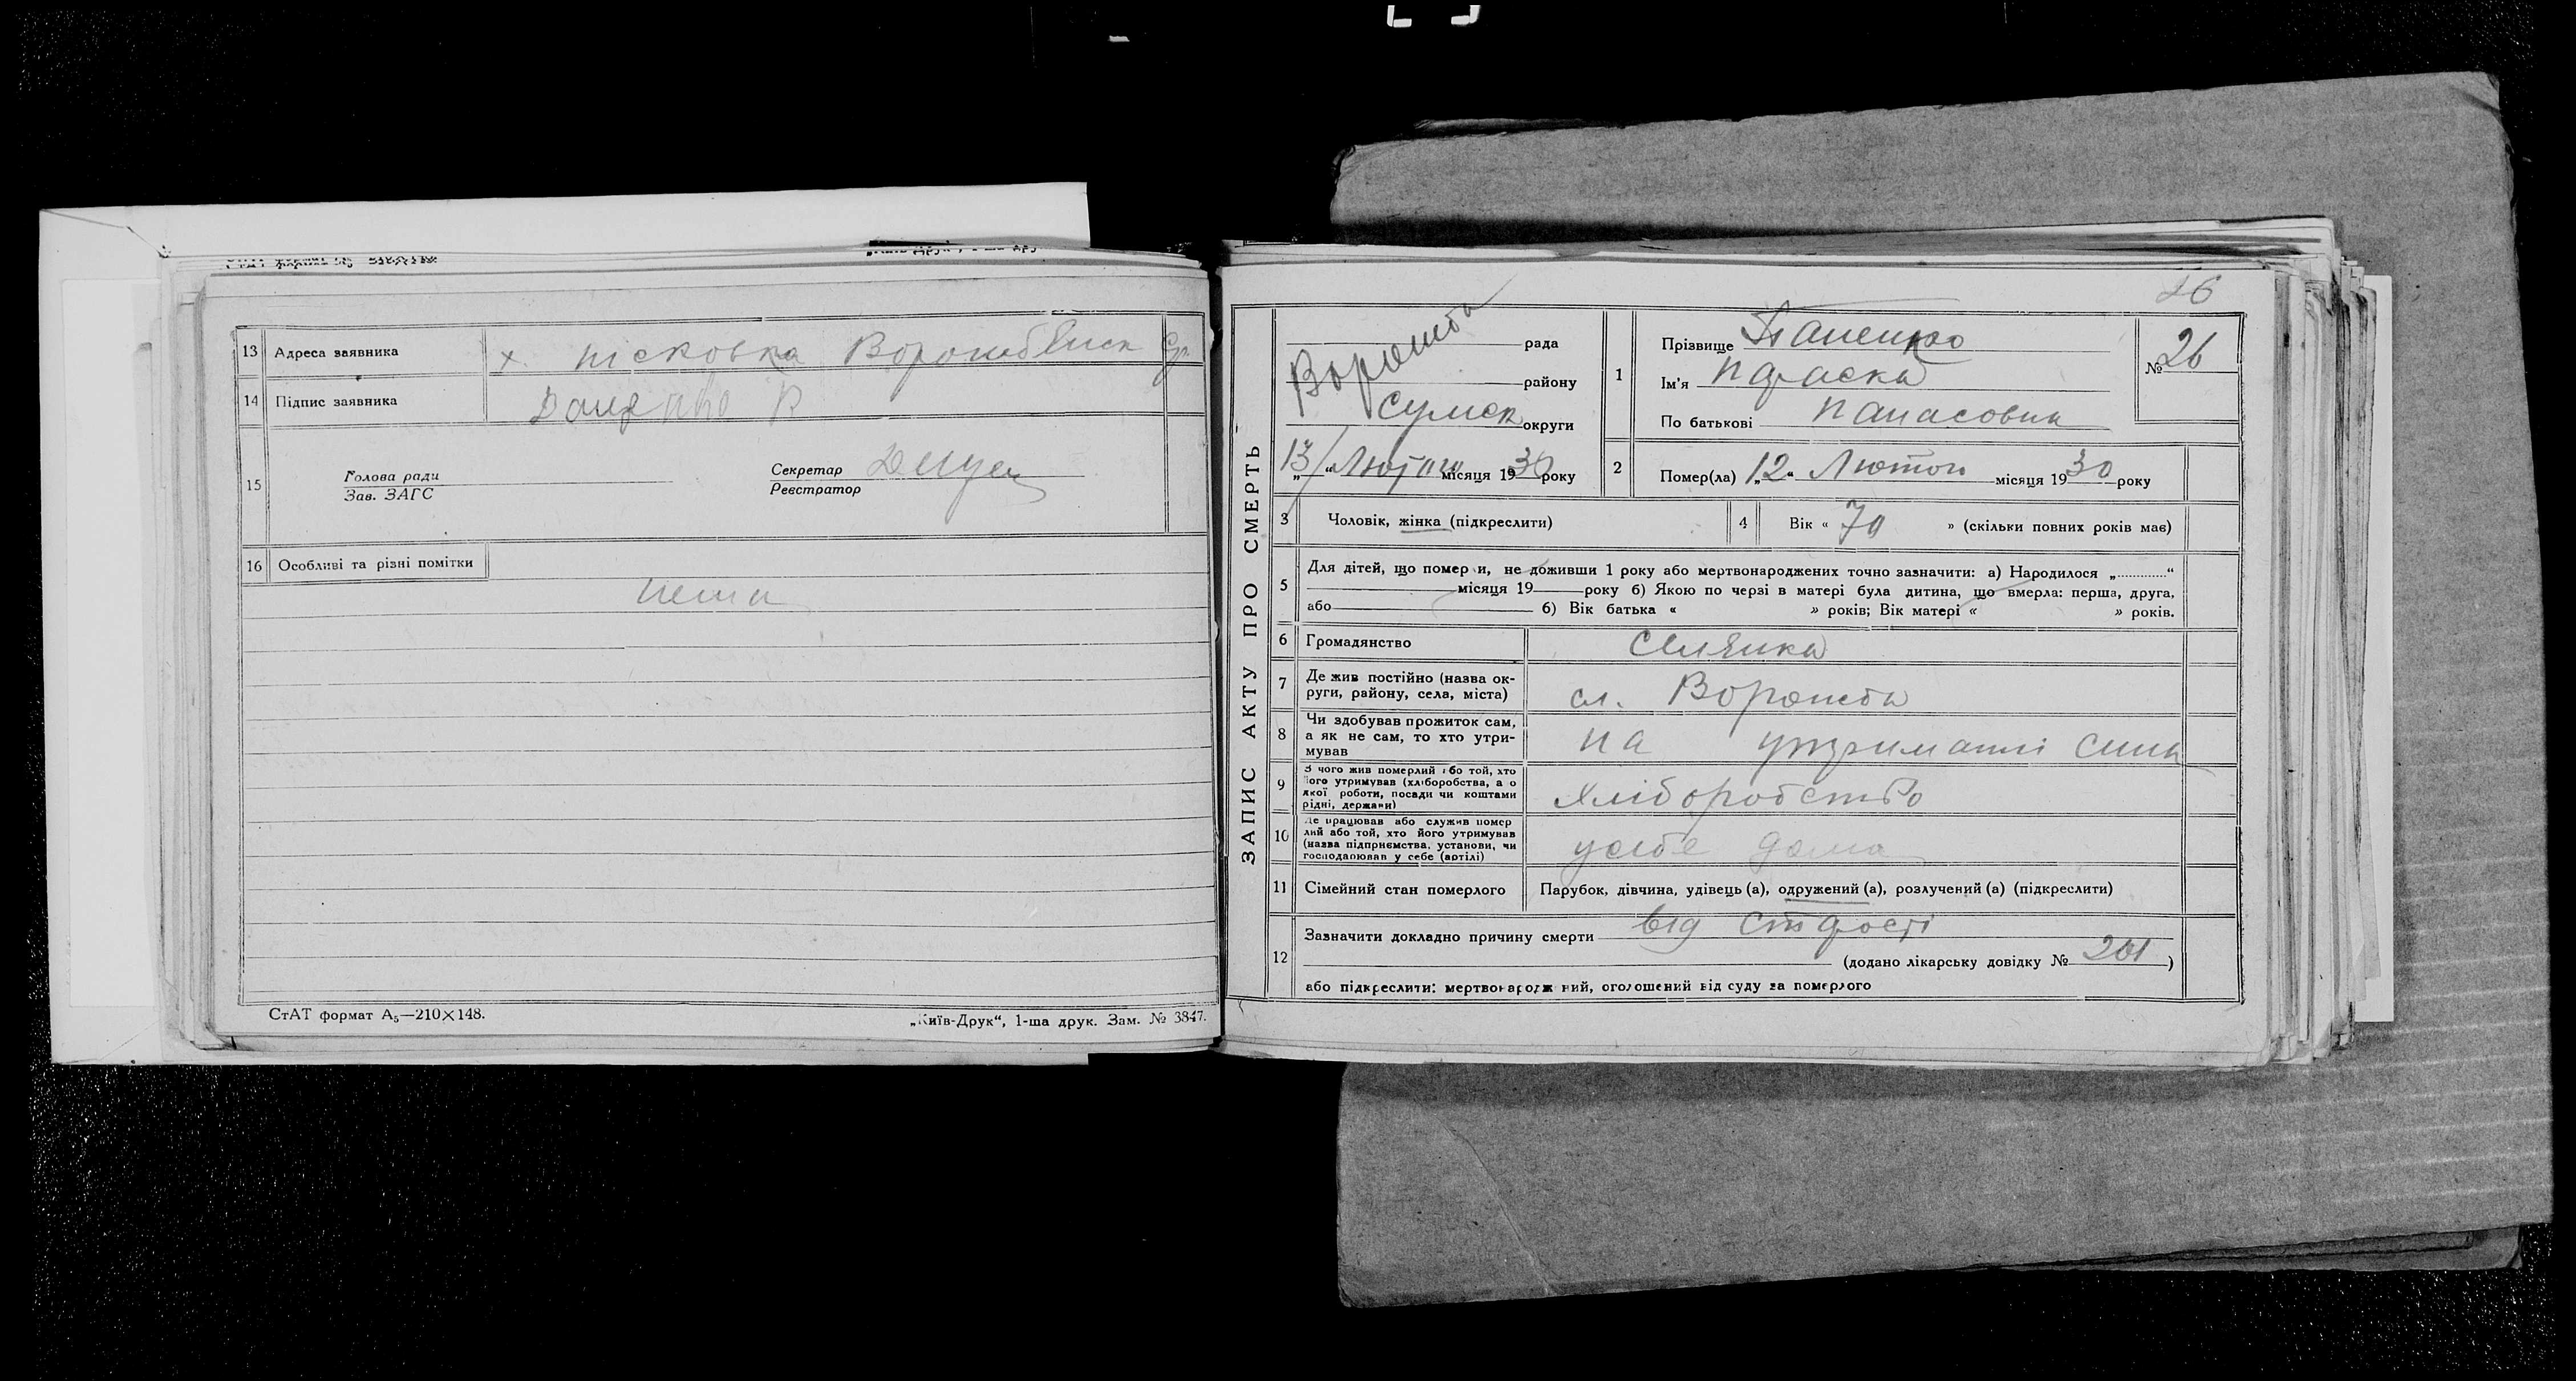 13 Адреса заявника х. пісковка
14 Підпис заявника
15 Голова ради
Зав. ЗАГС
Секретар
Реєстратор
16 Особливі та різні помітки
нема
СтАТ формат А₅—210×148.
„Київ-Друк“, 1-ша друк. Зам. № 3847.
26
ЗАПИС АКТУ ПРО СМЕРТЬ
Ворожба рада
району
Сумск округи
„13“ Лютого місяця 1930 року
1 Прізвище Паненко
Ім'я Параска
По батькові Панасовна
№ 26
2 Помер(ла) „12“ Лютого місяця 1930 року
3 Чоловік, жінка (підкреслити)
4 Вік « 70 » (скільки повних років має)
5 Для дітей, що померли, не доживши 1 року або мертвонароджених точно зазначити: а) Народилося „............“
місяця 19 року б) Якою по черзі в матері була дитина, що вмерла: перша, друга,
або б) Вік батька « » років; Вік матері « » років.
6 Громадянство Селянка
7 Де жив постійно (назва ок-
руги, району, села, міста) сл. Ворожба
8 Чи здобував прожиток сам,
а як не сам, то хто утри-
мував на утриманні сина
9 З чого жив померлий або той, хто
його утримував (хліборобства, а о
якої роботи, посади чи коштами
рідні, держави) Хліборобство
10 Де працював або служив помер
лий або той, хто його утримував
(назва підприємства, установи, чи
господарював у себе (артілі) усебе дома
11 Сімейний стан померлого Парубок, дівчина, удівець (а), одружений (а), розлучений (а) (підкреслити)
12 Зазначити докладно причину смерти від старості
(додано лікарську довідку № 201)
або підкреслити: мертвонароджений, оголошений від суду за померлого